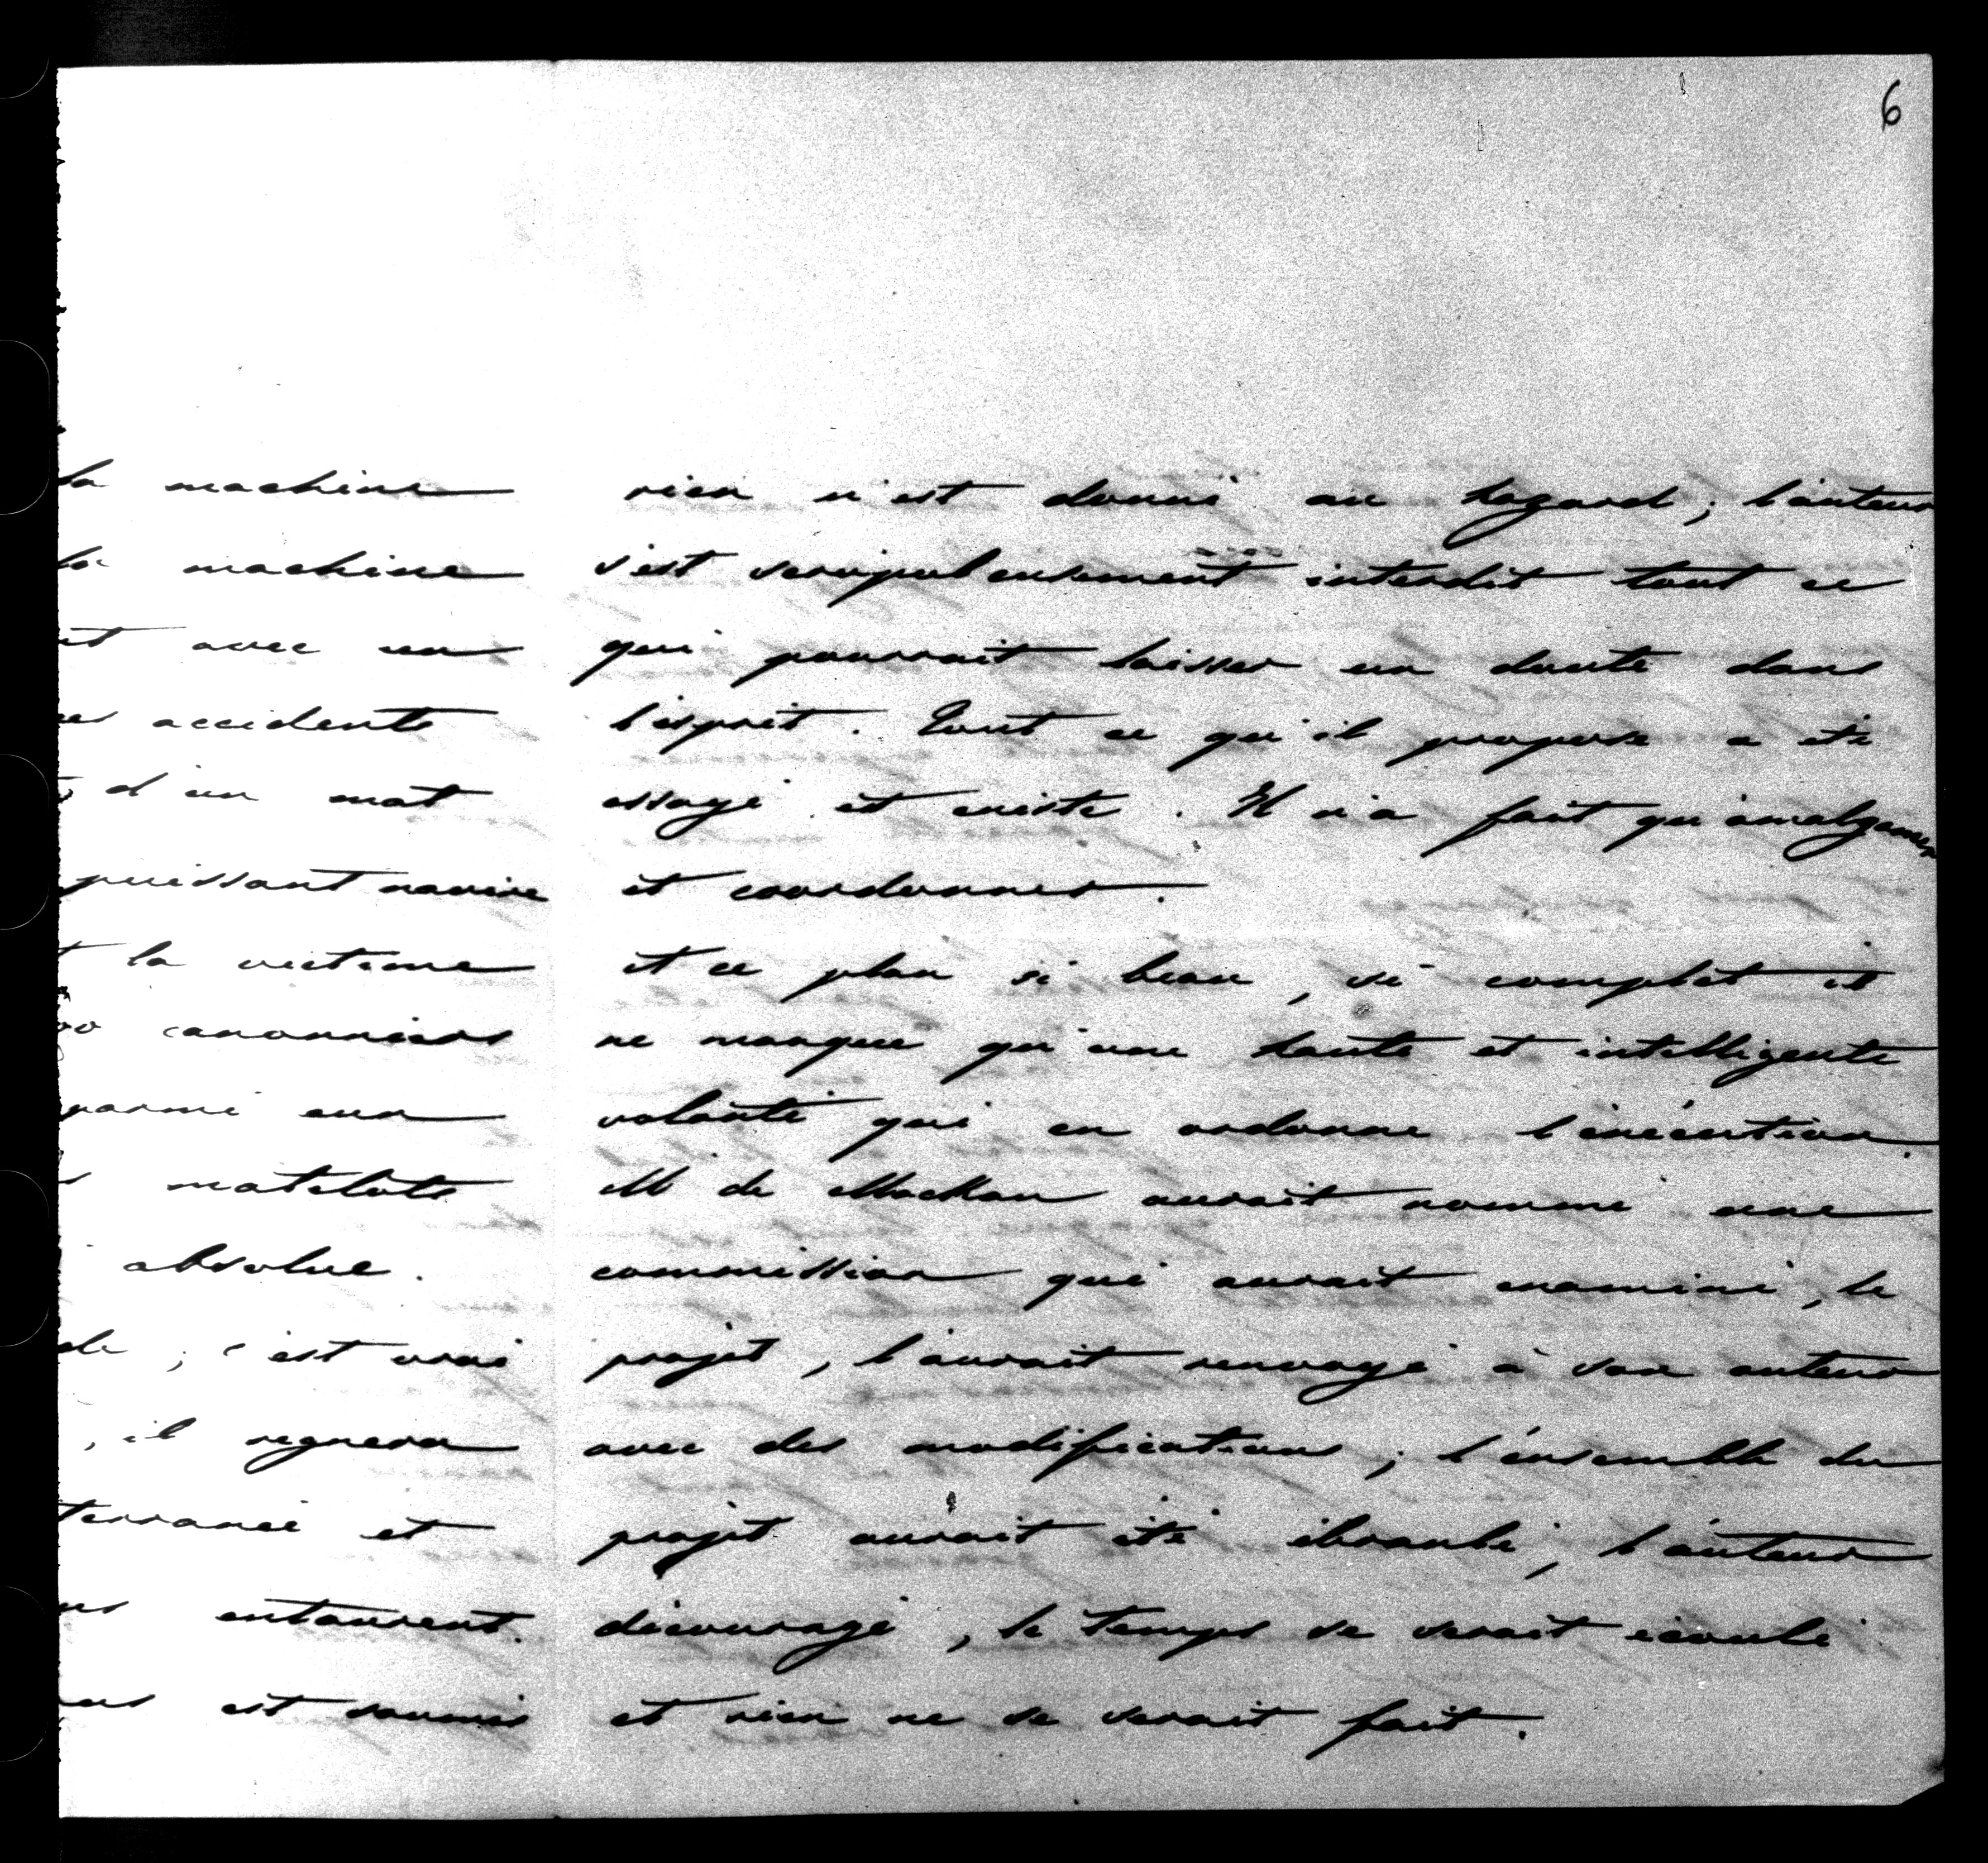 6
la machine
la machine
avec un
accidents
d'un mat
puissant navire
la victime
canonniers
parmi eux
matelots
absolue.
; c'est vrai
, il regnera
et
entourent.
est soumis
rien n'est donné au hazard ; l'auteur
s'est scrupuleusement interdit tout ce
qui pourrait laisser un doute dans
l'esprit. Tout ce qu'il propose a été
essayé et existe. Il n'a fait qu'amalgamer
et coordonner.
et ce plan si beau, si complet il
ne manque qu'une haute et intelligente
volonté qui en ordonne l'exécution.
M de Mackau aurait nommé une
commission qui aurait examiné, le
projet, l'aurait renvoyé à son auteur
avec des modifications ; l'ensemble du
projet aurait été ébranlé, l'auteur
découragé, le temps se serait écoulé
et rien ne se serait fait.